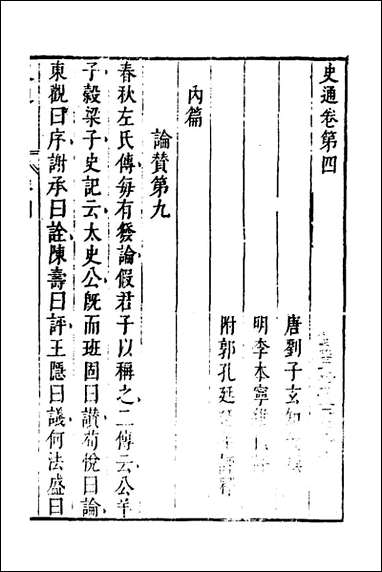 史通卷第四
唐劉子玄知
明李本寧
附郭孔延
內篇
論贊第九
春秋左氏傳每有發論假君子以稱之二傳云公羊
子穀梁子史記云太史公既而班固曰讃荀悅曰論
東觀曰序謝承曰詮陳壽曰評王隱曰議何法盛曰